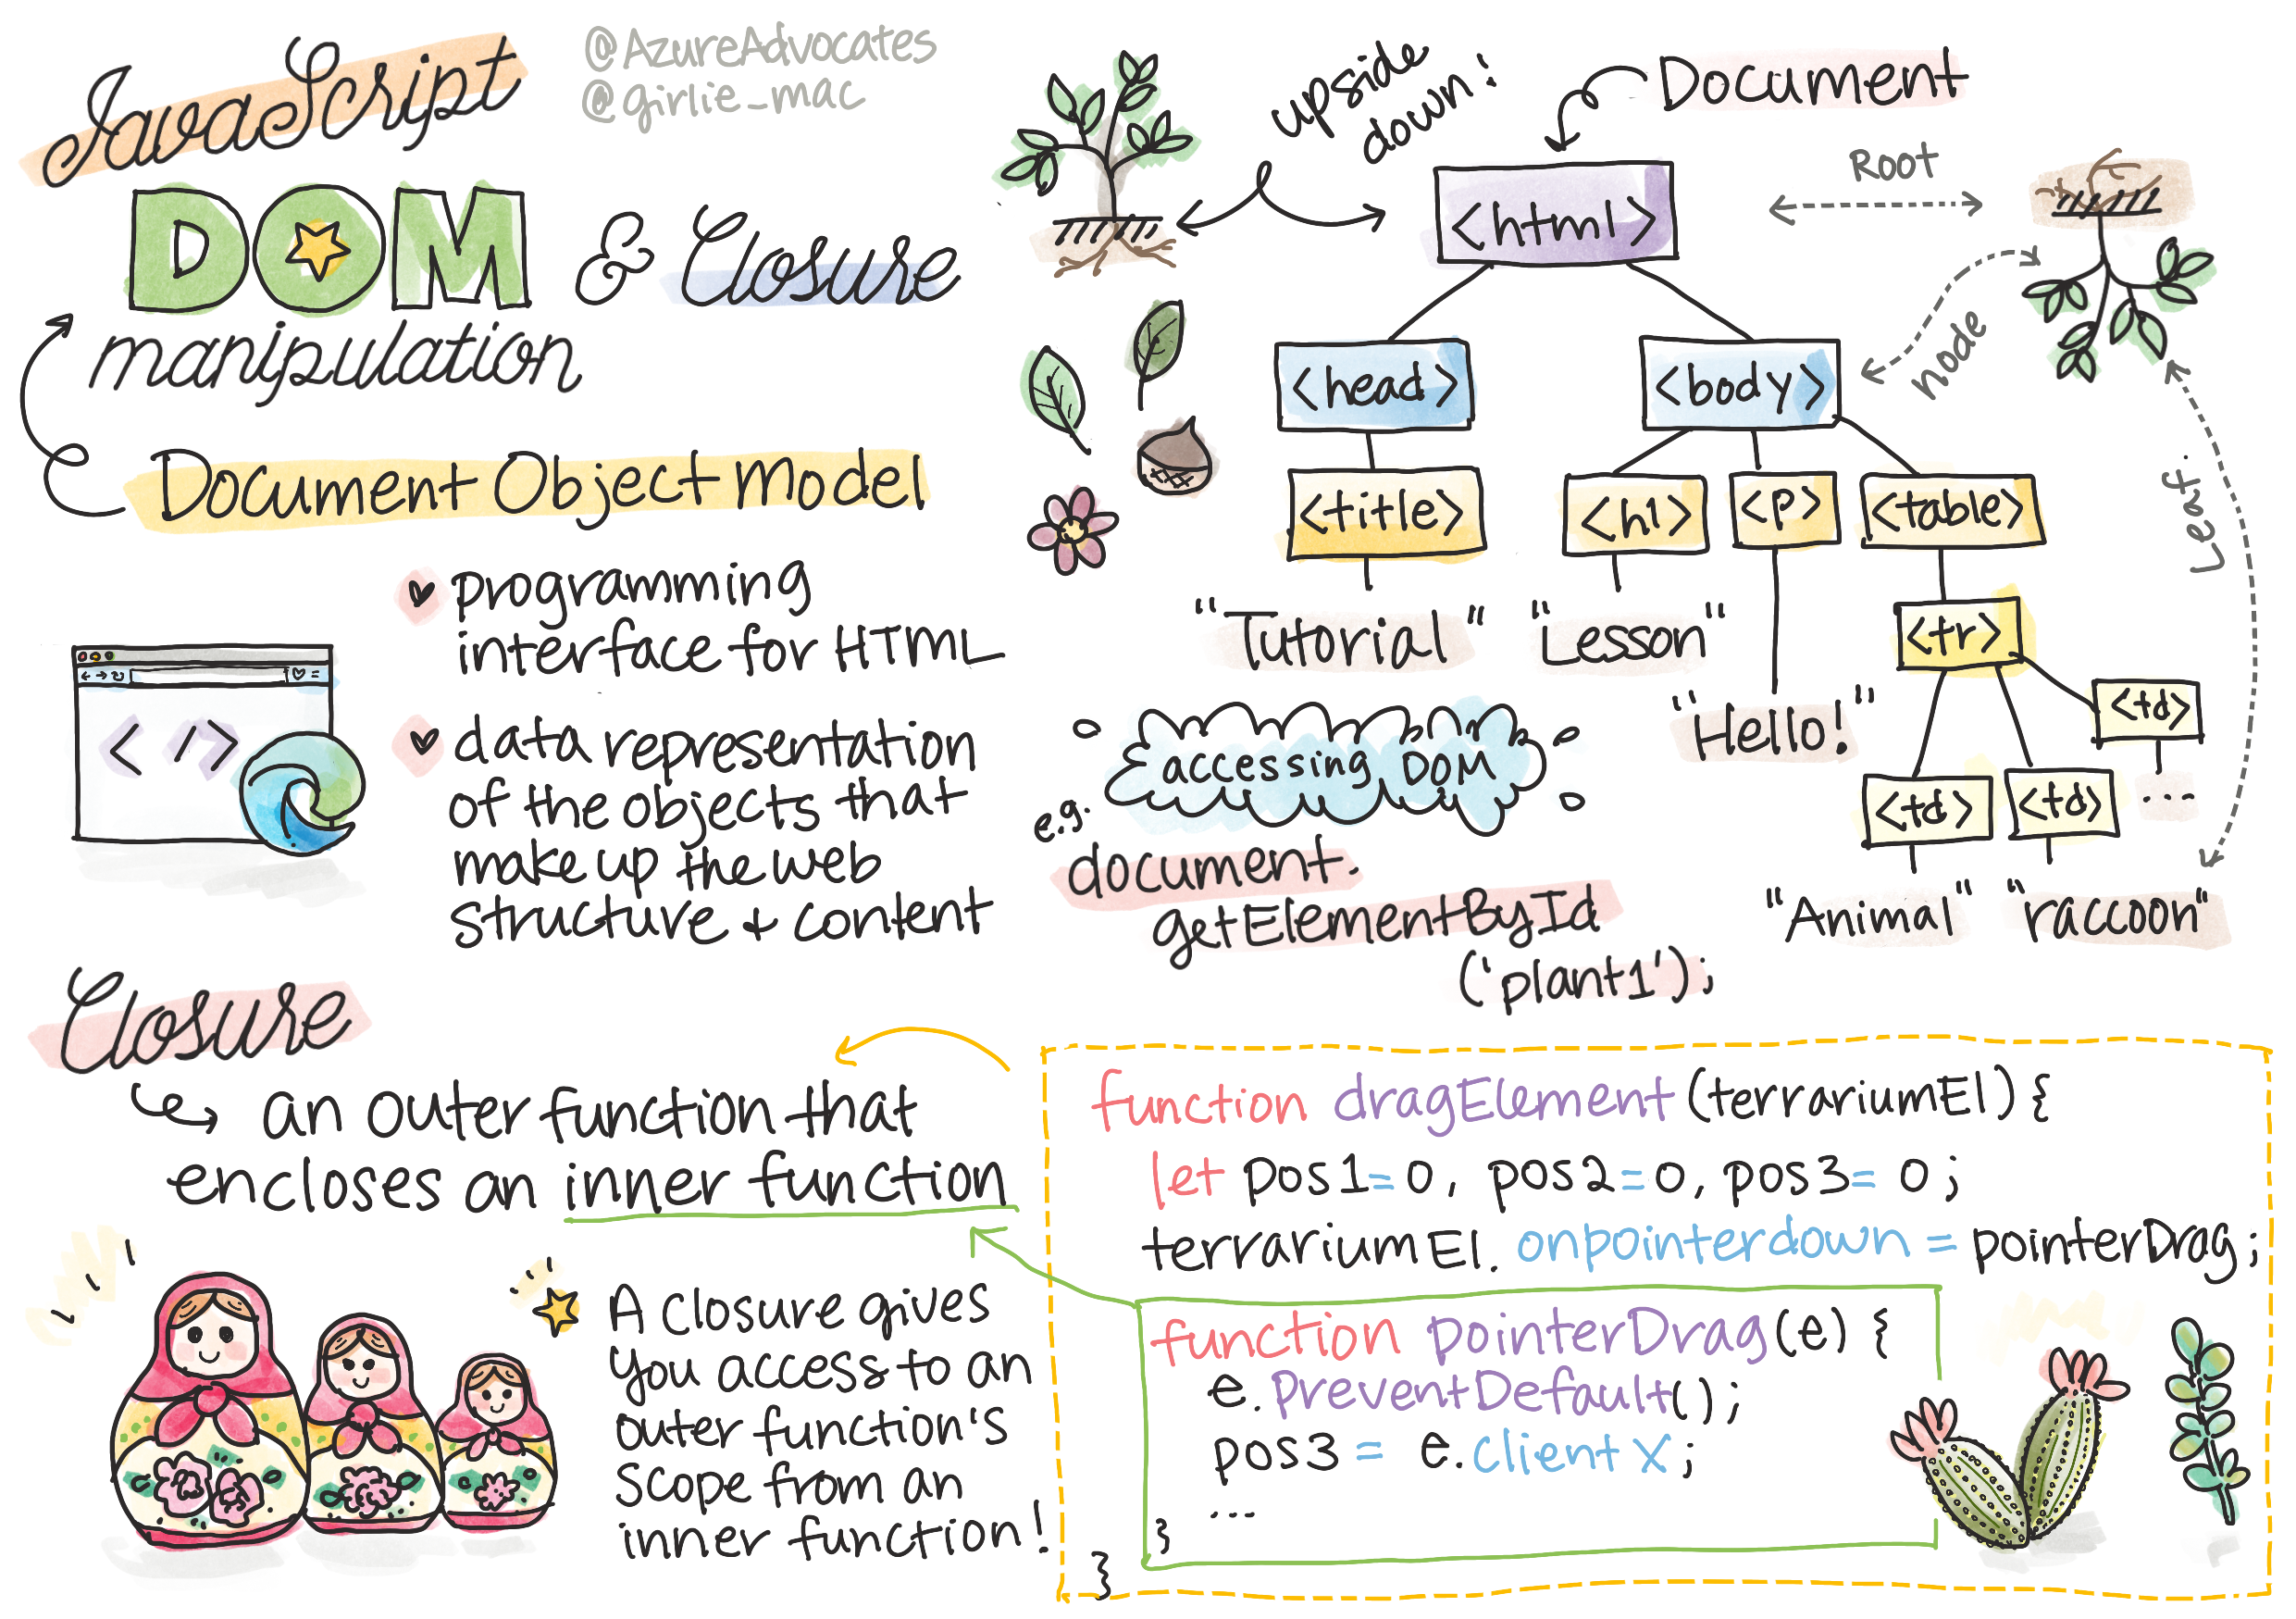 JavaScript
DOM
manipulation
& Closure
@AzureAdvocates
@girlie_mac
Document Object Model
programming
interface for HTML
data representation
of the objects that
make up the web
structure & content
< />
upside
down!
Document
Root
node
Leaf
<html>
<head>
<body>
<title>
<h1>
<p>
<table>
"Tutorial"
"Lesson"
"Hello!"
<tr>
<td>
<td>
<td>
...
"Animal"
"raccoon"
accessing DOM
e.g.
document.
getElementById
('plant1');
Closure
an outer function that
encloses an inner function
A closure gives
you access to an
outer function's
scope from an
inner function!
function dragElement (terrariumEl) {
let pos1=0, pos2=0, pos3= 0;
terrariumEl.onpointerdown = pointerDrag;
function pointerDrag(e) {
e.preventDefault();
pos3 = e.clientX;
...
}
}